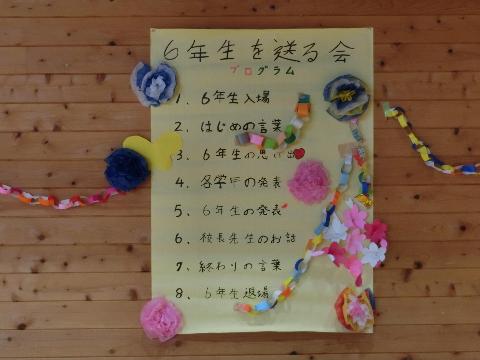 6年生を送る会
プログラム
1. 6年生入場
2. はじめの言葉
3. 6年生の思い出
4. 各学年の発表
5. 6年生の発表
6. 校長先生のお話
7. 終わりの言葉
8. 6年生退場